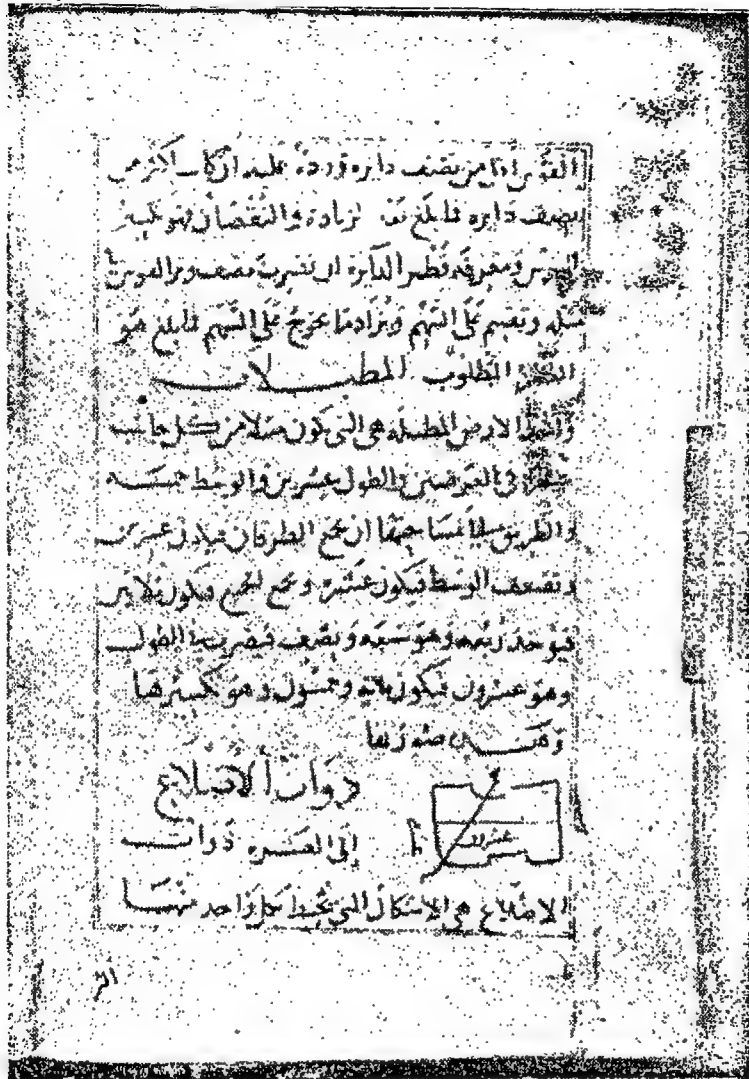 القوس اقل من نصف دايره وزده عليه ان كان اكثر من
نصف دايره فما بلغ بعد الزيادة والنقصان فهو
القوس ومعرفة قطر الدايرة ان تضرب نصف وتر القوس في
مثله وتقسم على السهم وتزاد ما يخرج على السهم فما بلغ هو
القطر المطلوب المطبلات
واما الارض المطبله هي التي تكون مثلا من كل جانب
في العرضين والطول عشرين والوسط خمسه
والطريق في مساحتها ان تجمع الطرفان فيكون عشرين
وتضعف الوسط فيكون عشره وتجمع الجميع فيكون ثلاثين
فيوخذ ربعه وهو سبعه ونصف فيضرب في الطول
وهو عشرون فيكون مائه وخمسون وهو تكسيرها
وهذه صورتها
ذوات الاضلاع
عشرون
الى العشره ذوات
الاضلاع هي الاشكال التي تحيط بكل واحد منها